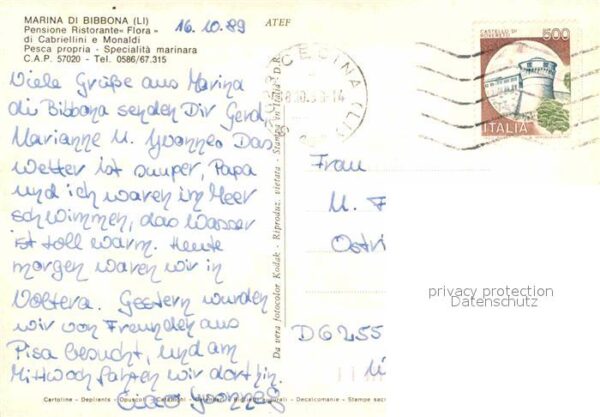 MARINA DI BIBBONA (LI)
Pensione Ristorante «Flora»
di Cabriellini e Monaldi
Pesca propria - Specialità marinara
C.A.P. 57020 - Tel. 0586/67.315
16.10.89
ATEF
Viele Grüße aus Marina
di Bibbona senden Dir Gerd,
Marianne u. Yvonne. Das
Wetter ist super, Papa
und ich waren im Meer
schwimmen, das Wasser
ist toll warm. Heute
morgen waren wir in
Voltera. Gestern wurden
wir von Freunden aus
Pisa besucht, und am
Mittwoch fahren wir dorthin.
Ciao Yvonne
Da vera fotocolor Kodak - Riproduz. vietata - Stampa in Italia - D.R.
CECINA (LI)
CASTELLO DI
ROVERETO
500
ITALIA
Frau
M. F
Ostri
D6255
privacy protection
Datenschutz
Cartoline - Depliants - Opuscoli - Cataloghi - Calendari - Biglietti augurali - Decalcomanie - Stampe